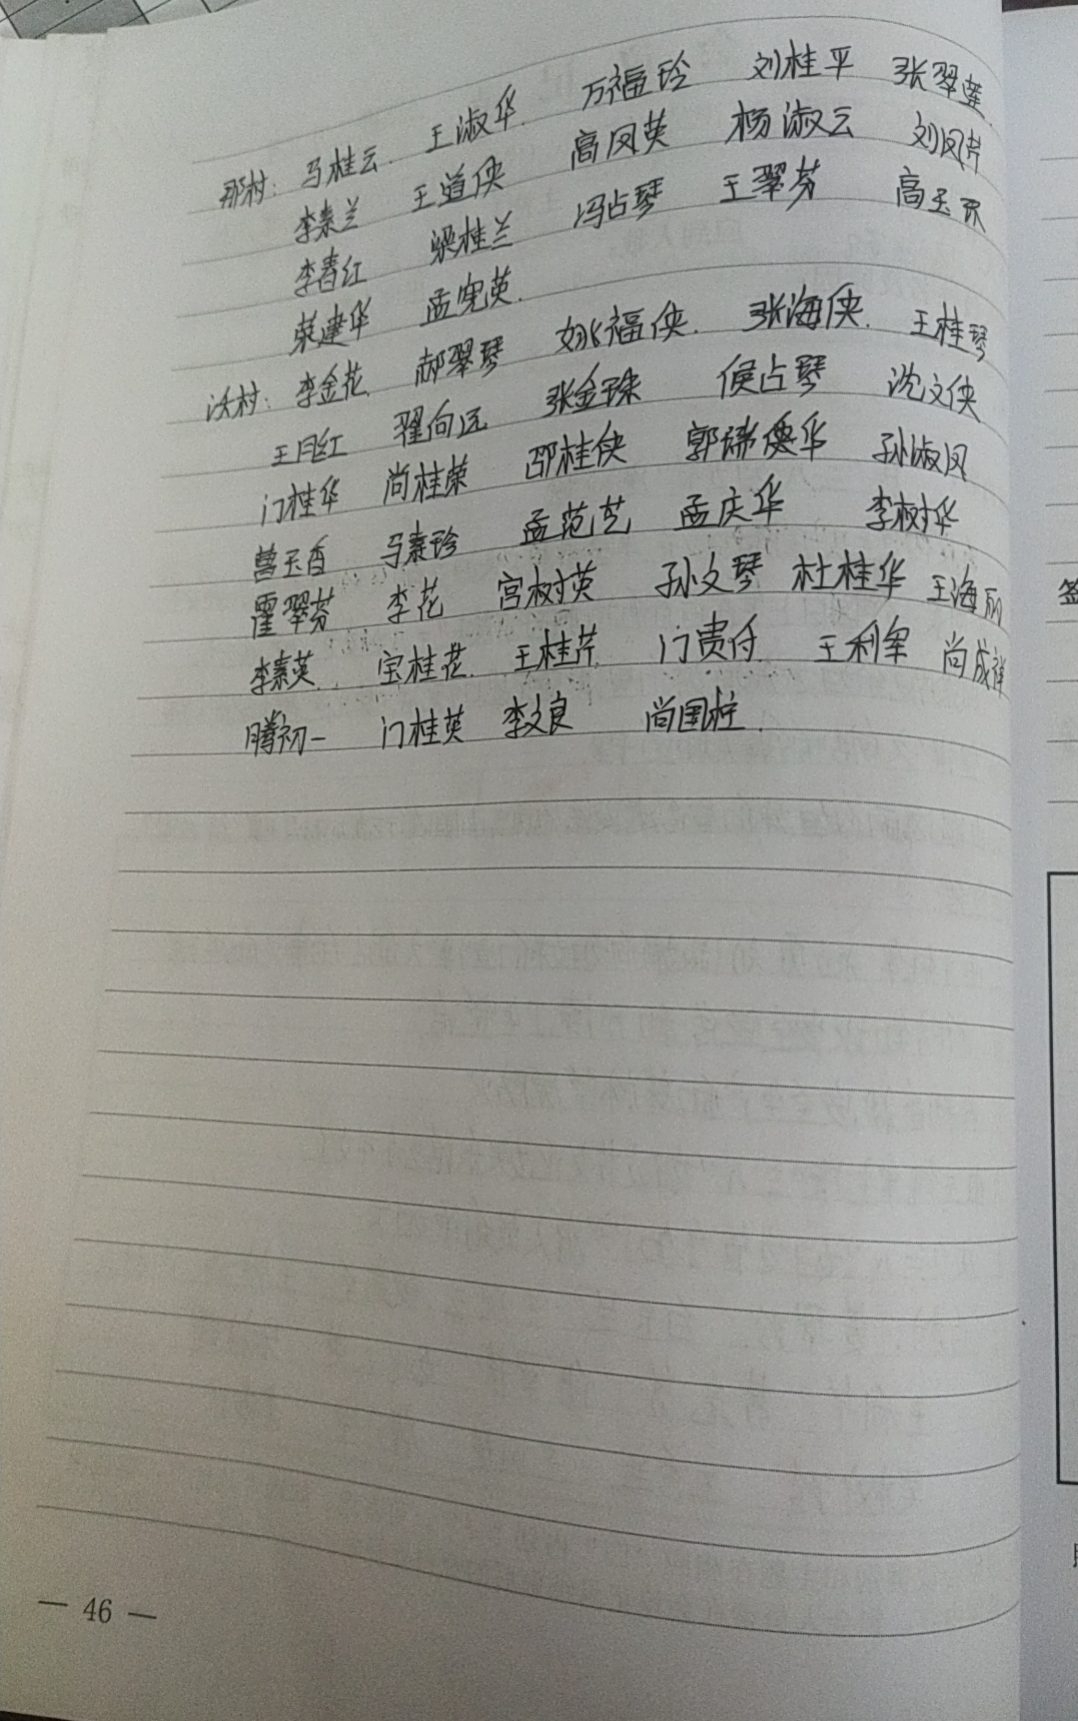 那村: 马桂云. 王淑华. 万福玲 刘桂平 张翠莲.
李素兰 王道侠 高凤英 杨淑云 刘凤芹
李春红 梁桂兰 冯占琴 王翠芬 高玉环
荣建华 孟宪英.
沃村: 李金花. 郝翠琴 姚福侠. 张海侠. 王桂琴
王月红 翟向远 张金珠 侯占琴 沈文侠
门桂华 尚桂荣 邵桂侠 孙淑凤
曹玉香 马素玲 孟范艺 孟庆华 李树华
霍翠芬 李花 宫树英 孙文琴 杜桂华 王海丽
李素英. 宝桂花. 王桂芹. 门贵付 王利军 尚成祥
腾初一 门桂英 李文良 尚国柱.
签
— 46 —